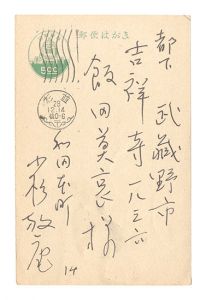 郵便はがき
都下 武蔵野市
吉祥寺一八三六
飯田莫哀様
28
12.14
和田本町
小杉放庵
14